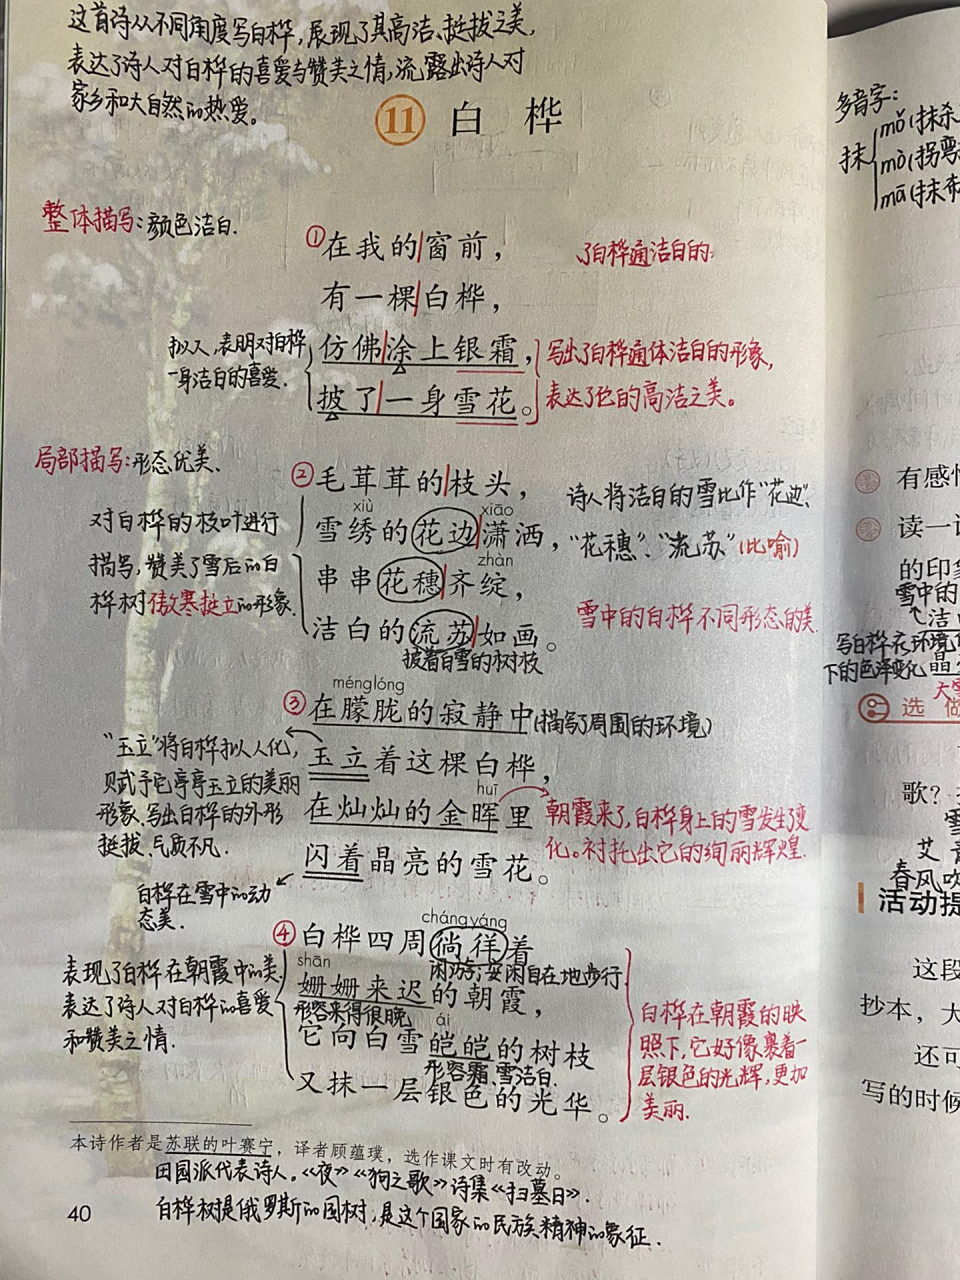 这首诗从不同角度写白桦,展现了其高洁、挺拔之美,
表达了诗人对白桦的喜爱与赞美之情,流露出诗人对
家乡和大自然的热爱。
11 白 桦
整体描写:颜色洁白.
①在我的窗前,
了白桦通洁白的
有一棵白桦,
拟人,表明对白桦
一身洁白的喜爱.
仿佛涂上银霜,
披了一身雪花。
写出了白桦通体洁白的形象,
表达了它的高洁之美。
局部描写:形态优美、
②毛茸茸的枝头,
xiù xiāo
雪绣的花边潇洒,
zhàn
串串花穗齐绽,
洁白的流苏如画。
披着白雪的树枝
对白桦的枝叶进行
描写,赞美了雪后的白
桦树傲寒挺立的形象.
诗人将洁白的雪比作“花边”、
“花穗”、“流苏”(比喻)
雪中的白桦不同形态的美.
ménglóng
③在朦胧的寂静中(描写了周围的环境)
玉立着这棵白桦,
huī
在灿灿的金晖里
闪着晶亮的雪花。
“玉立”将白桦拟人化,
赋予它亭亭玉立的美丽
形象.写出白桦的外形
挺拔、气质不凡.
白桦在雪中的动
态美.
朝霞来了,白桦身上的雪发生了变
化。衬托出它的绚丽辉煌.
cháng yáng
④白桦四周徜徉着
闲游;安闲自在地步行.
shān
姗姗来迟的朝霞,
形容来得很晚
ái
它向白雪皑皑的树枝
形容霜、雪洁白.
又抹一层银色的光华。
表现了白桦在朝霞中的美.
表达了诗人对白桦的喜爱
和赞美之情.
白桦在朝霞的映
照下,它好像裹着一
层银色的光辉,更加
美丽.
本诗作者是苏联的叶赛宁,译者顾蕴璞,选作课文时有改动。
田园派代表诗人。《夜》《狗之歌》诗集《扫墓日》.
白桦树是俄罗斯的国树,是这个国家的民族精神的象征.
40
多音字:
抹
mǒ(抹杀
mò(拐弯
mā(抹布
有感情
读一读
的印象
雪中的
洁白
写白桦在环境
下的色泽变化
选 做
歌?
艾 青
春风吹
活动提
这段
抄本,大
还可
写的时候